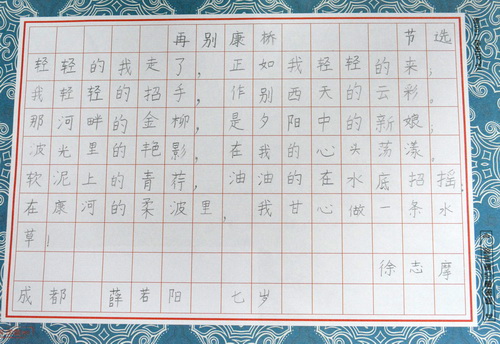 再别康桥 节选
轻轻的我走了，正如我轻轻的来；
我轻轻的招手，作别西天的云彩。
那河畔的金柳，是夕阳中的新娘；
波光里的艳影，在我的心头荡漾。
软泥上的青荇，油油的在水底招摇；
在康河的柔波里，我甘心做一条水
草！
徐志摩
成都 薛若阳 七岁